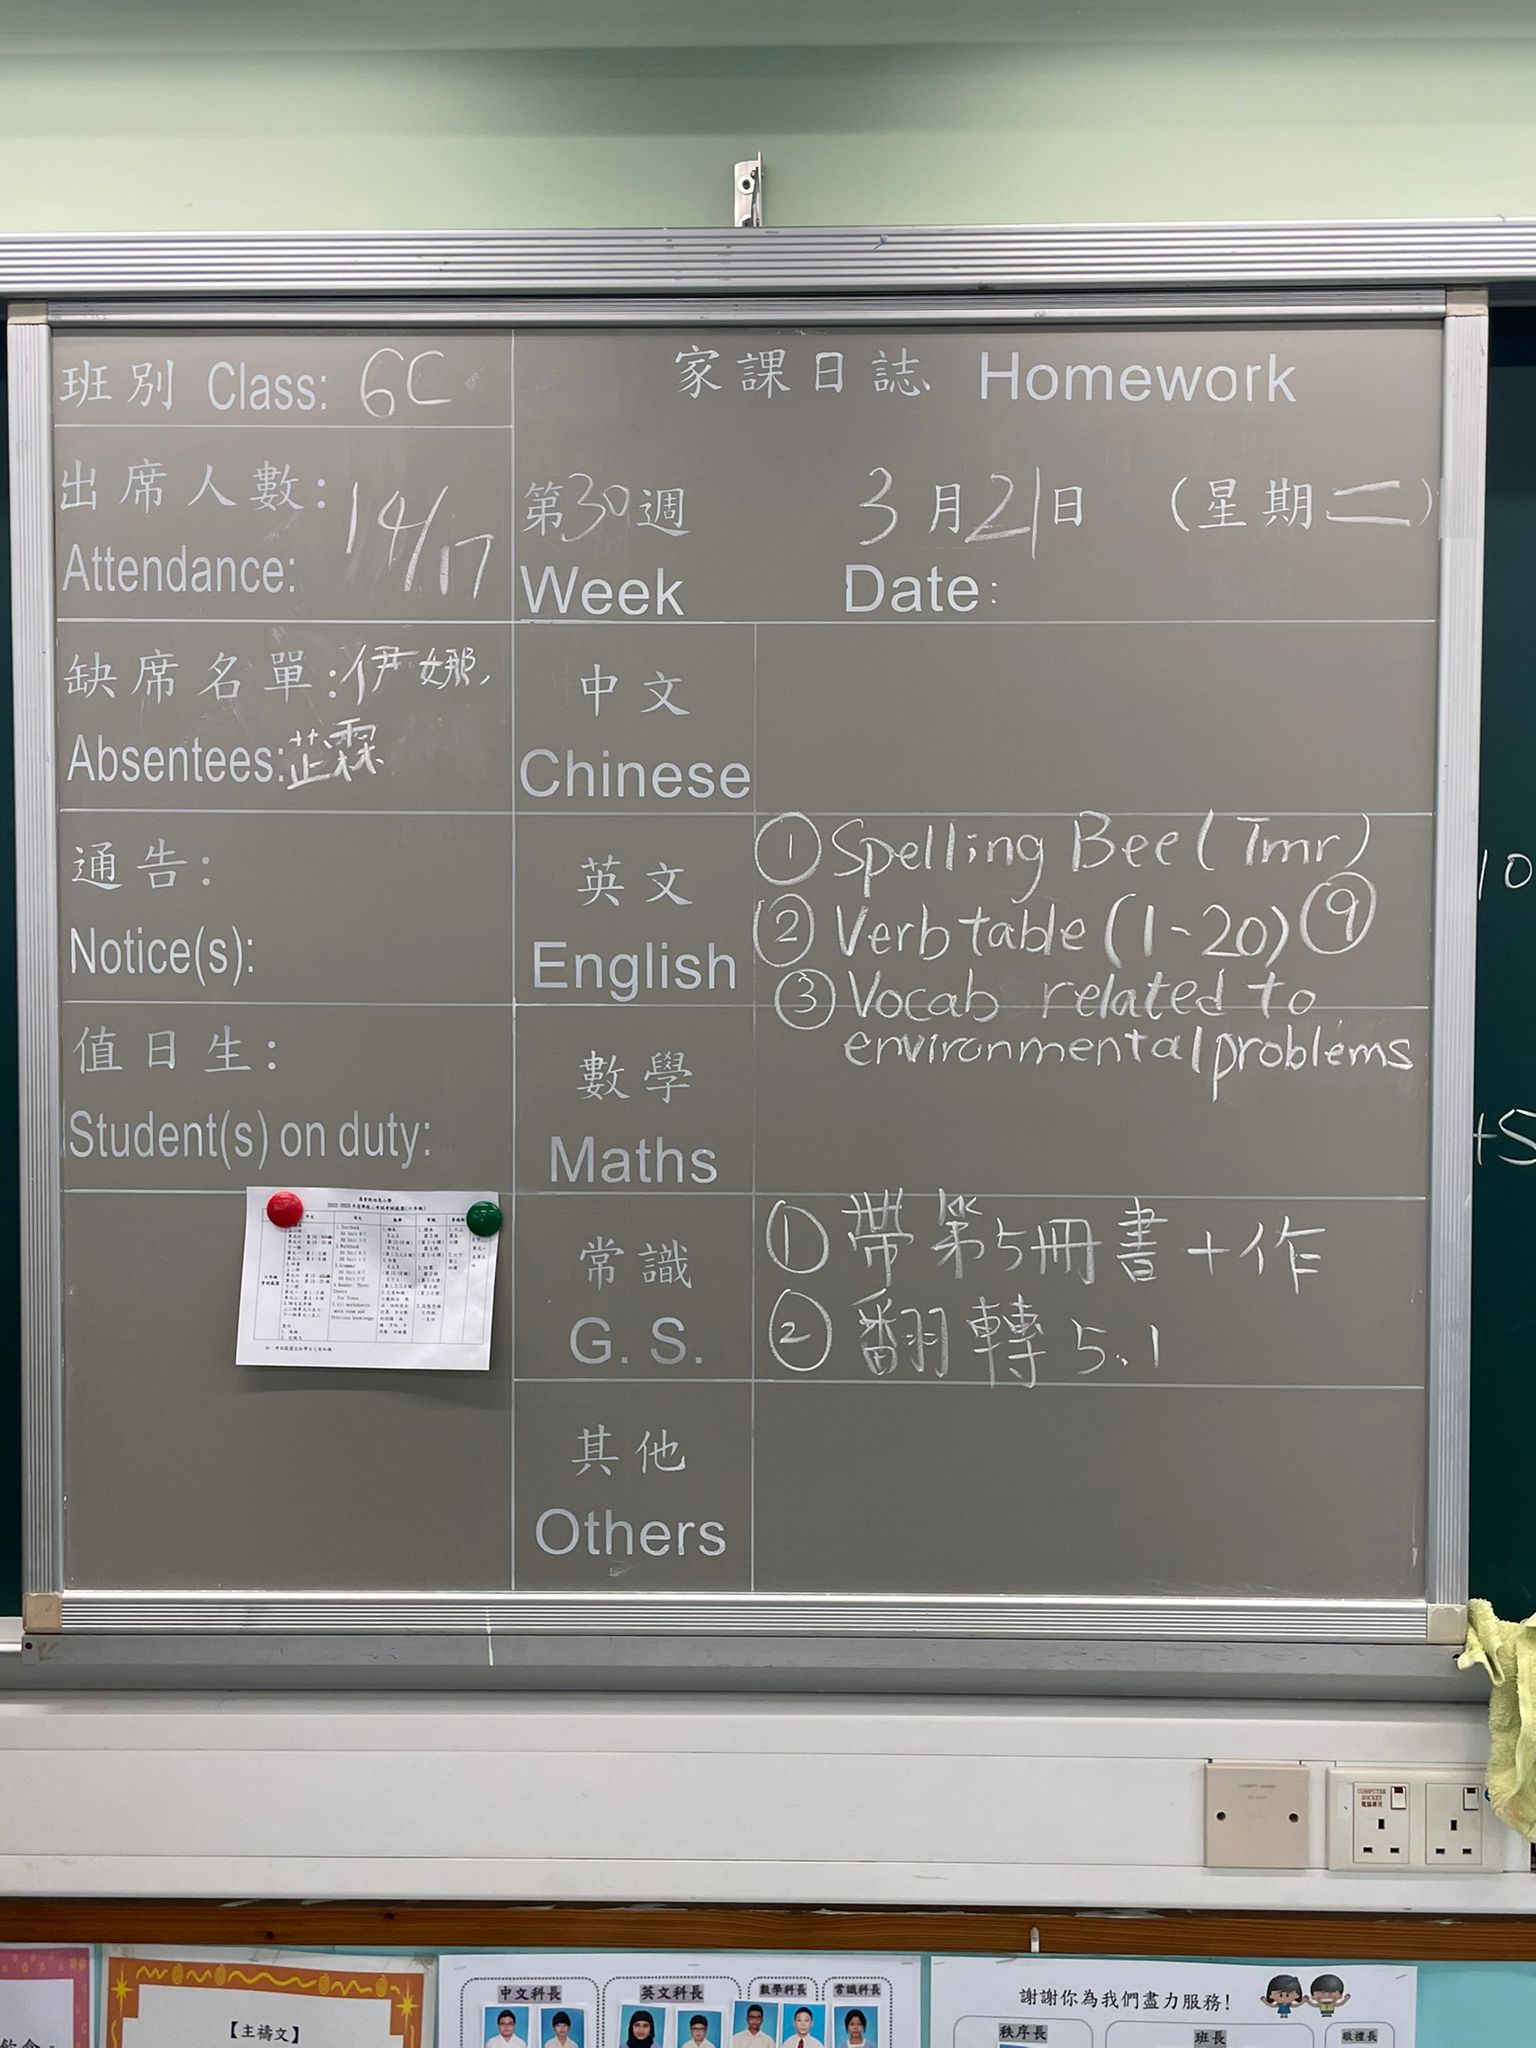 班別 Class: 6C
出席人數:
Attendance: 14/17
缺席名單: 伊娜,
Absentees: 芷霖
通告:
Notice(s):
值日生:
Student(s) on duty:
家課日誌 Homework
第30週 3月21日 (星期二)
Week Date:
中文
Chinese
英文
English
① Spelling Bee (Tmr)
② Verb table (1-20) ⑨
③ Vocab related to
environmental problems
數學
Maths
常識
G. S.
① 帶第5冊書+作
② 翻轉 5.1
其他
Others
10
+5
COMPUTER
SOCKET
電腦專用
【主禱文】
中文科長 英文科長 數學科長 常識科長
謝謝你為我們盡力服務!
秩序長 班長